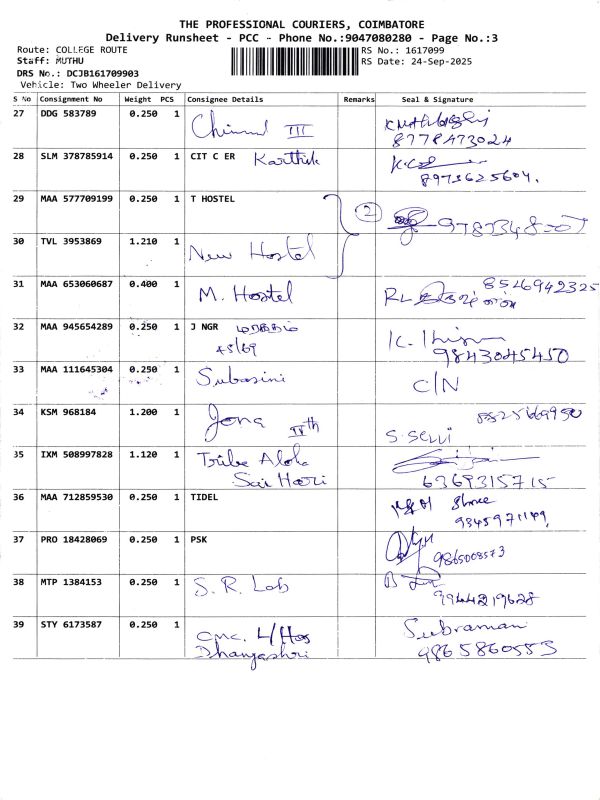 THE PROFESSIONAL COURIERS, COIMBATORE
Delivery Runsheet - PCC - Phone No.:9047080280 - Page No.:3
Route: COLLEGE ROUTE
RS No.: 1617099
Staff: MUTHU
RS Date: 24-Sep-2025
DRS No.: DCJB161709903
Vehicle: Two Wheeler Delivery
S No Consignment No Weight PCS Consignee Details Remarks Seal & Signature
27 DDG 583789 0.250 1 III
8778473024
28 SLM 378785914 0.250 1 CIT C ER Karthik
8973625604.
29 MAA 577709199 0.250 1 T HOSTEL
2
30 TVL 3953869 1.210 1 New Hostel
31 MAA 653060687 0.400 1 M. Hostel
8526942325
RL
32 MAA 945654289 0.250 1 J NGR
45/69
9843045450
33 MAA 111645304 0.250 1 Subasini C/N
34 KSM 968184 1.200 1 Jona IVth
S. Selvi
35 IXM 508997828 1.120 1 Tribe Aloha
Sai Hari
6369315715
36 MAA 712859530 0.250 1 TIDEL
Shree
37 PRO 18428069 0.250 1 PSK
9865008573
38 MTP 1384153 0.250 1 S. R. Lab
9944219628
39 STY 6173587 0.250 1 CMC. L/Hos Subramani
Dhanyashri 9865860553